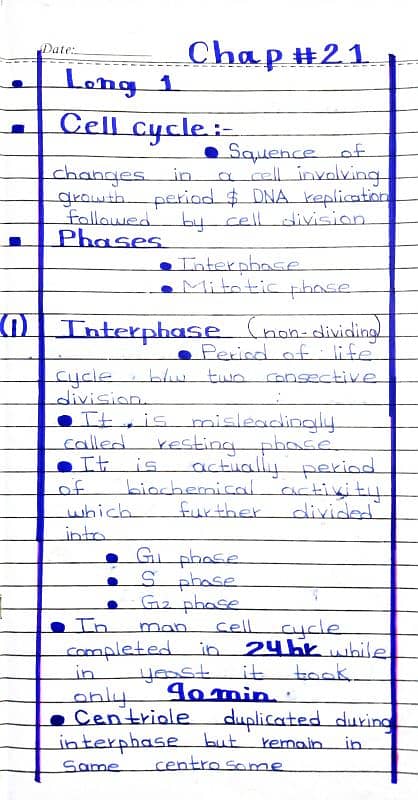 Date:
Chap #21
Long 1
Cell cycle:-
Squence of
changes in a cell involving
growth period $ DNA replication
followed by cell division
Phases
Interphase
Mitotic phase
(1) Interphase (non-dividing)
Period of life
cycle b/w two consective
division.
It is misleadingly
called resting phase
It is actually period
of biochemical activity
which further divided
into
G1 phase
S phase
G2 phase
In man cell cycle
completed in 24hr while
in yeast it took
only 90min.
Centriole duplicated during
interphase but remain in
same centrosome